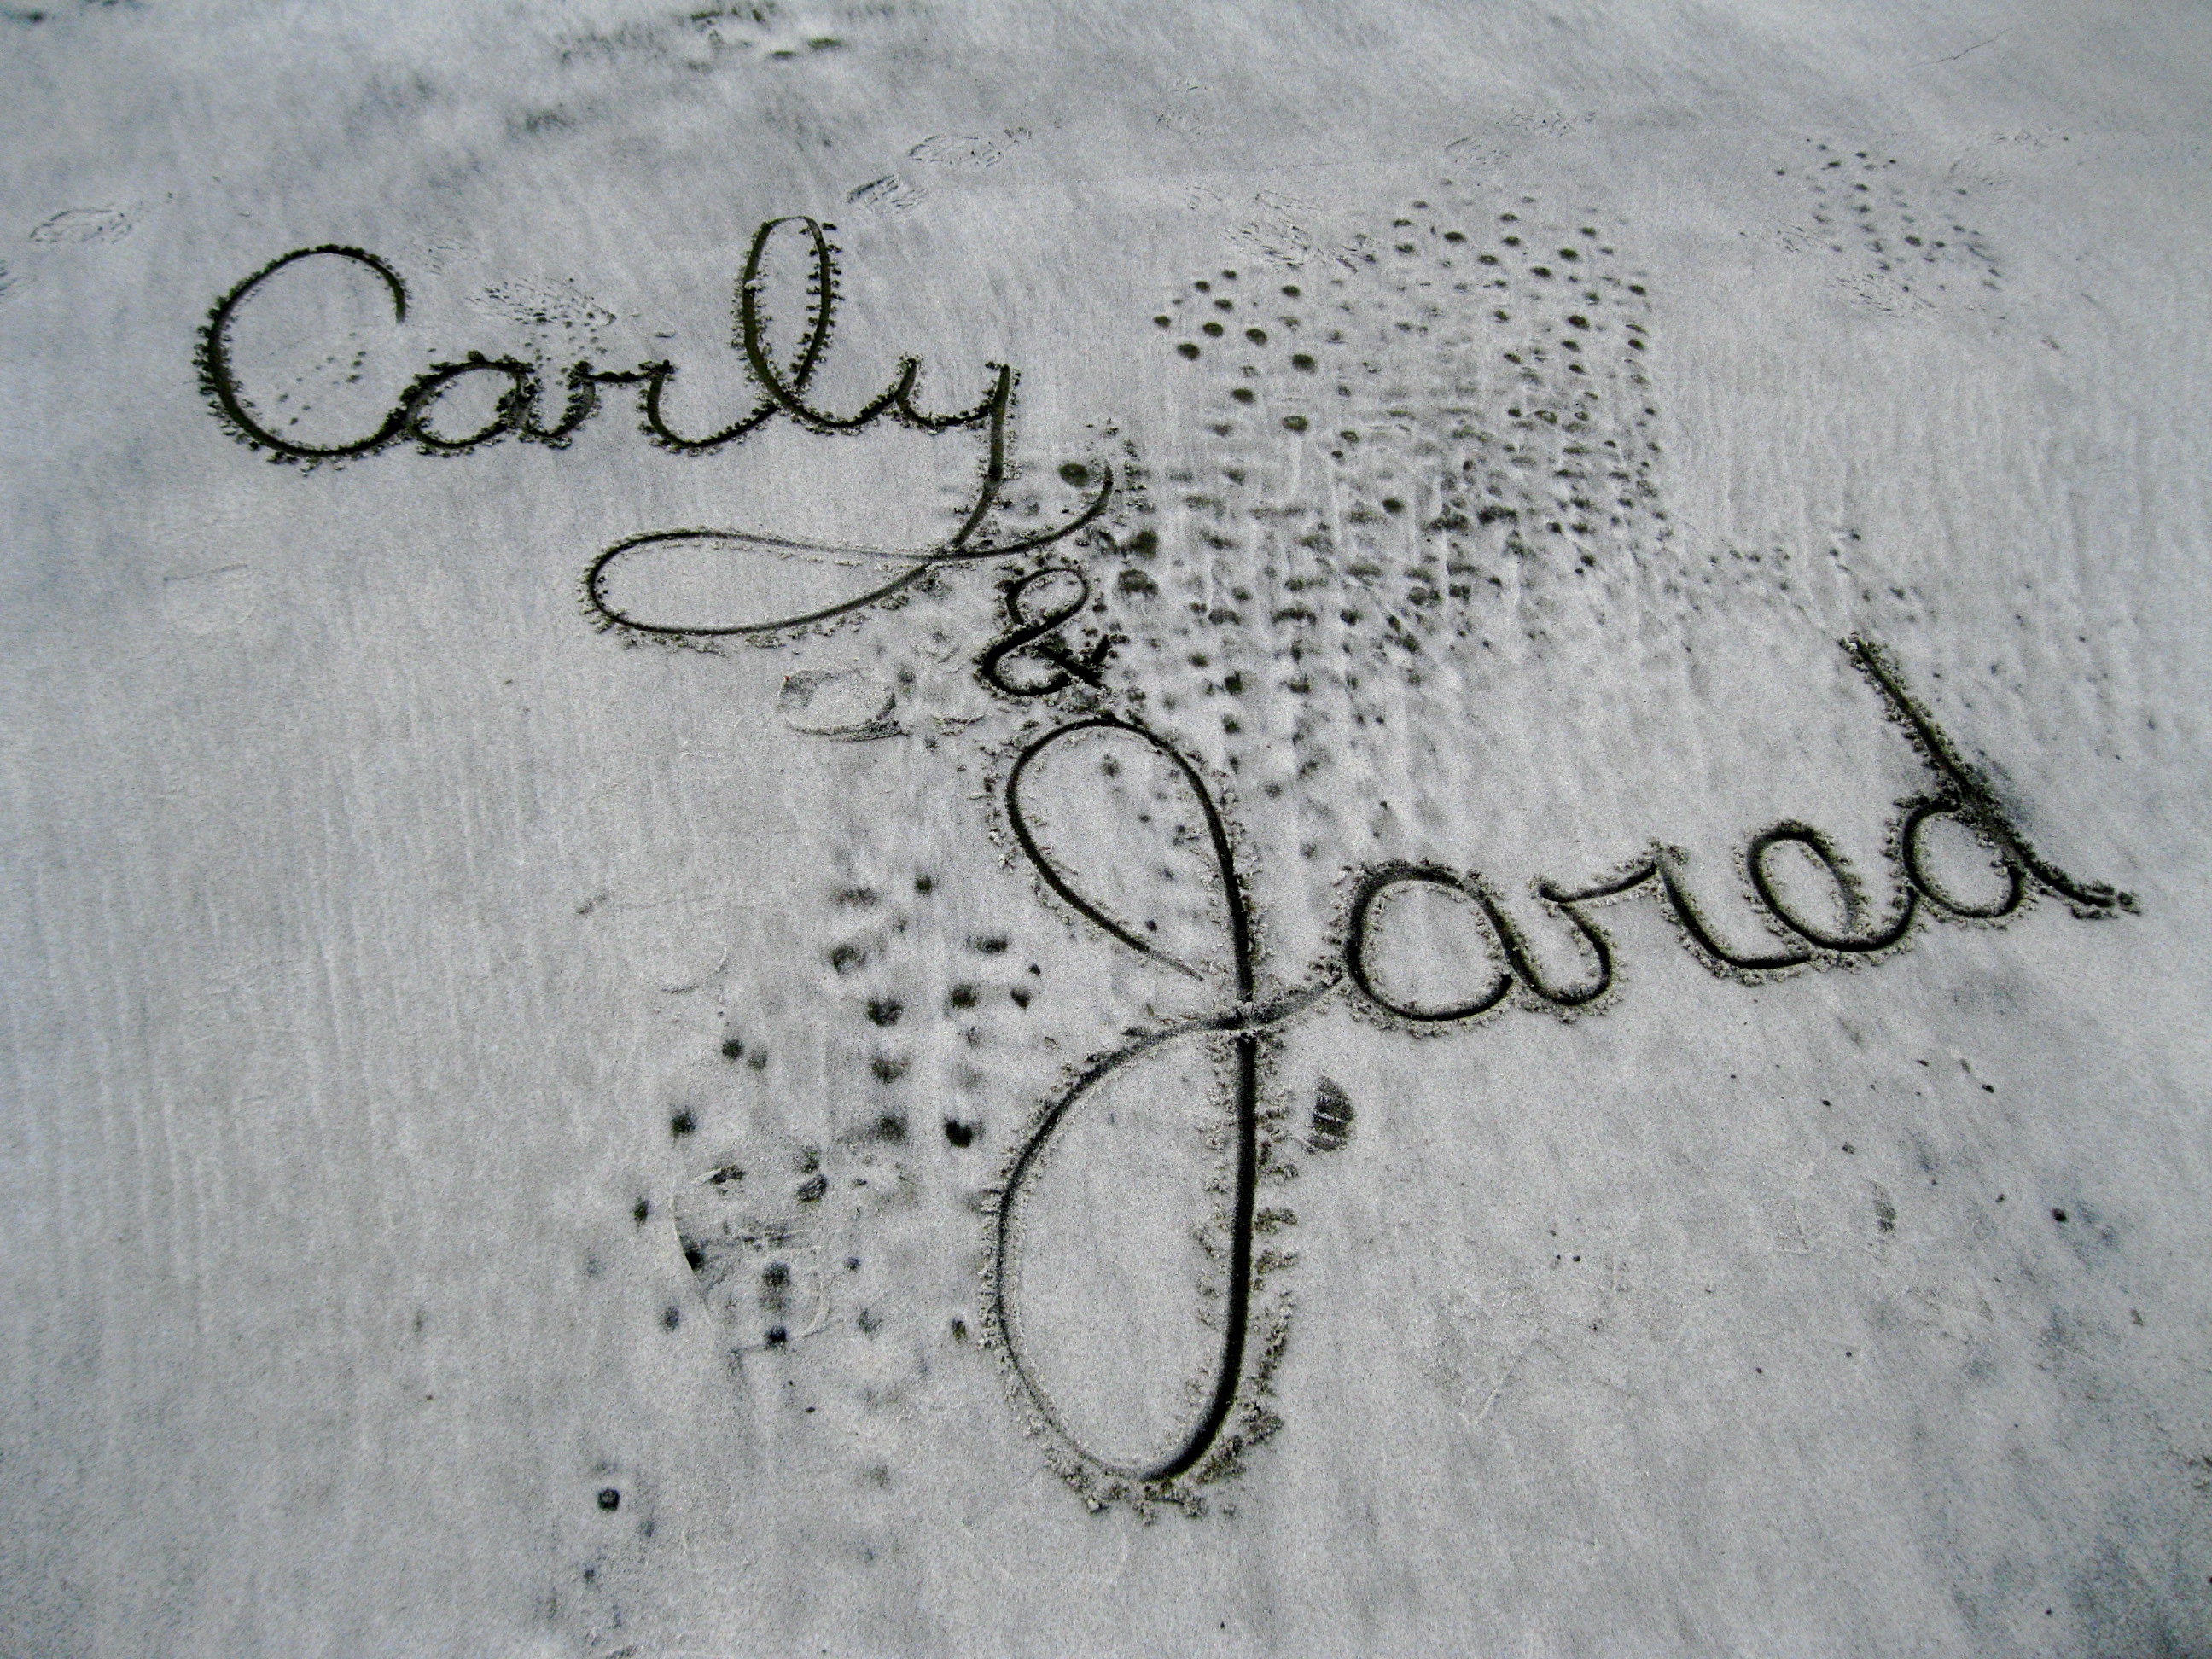 Carly
&
Jared